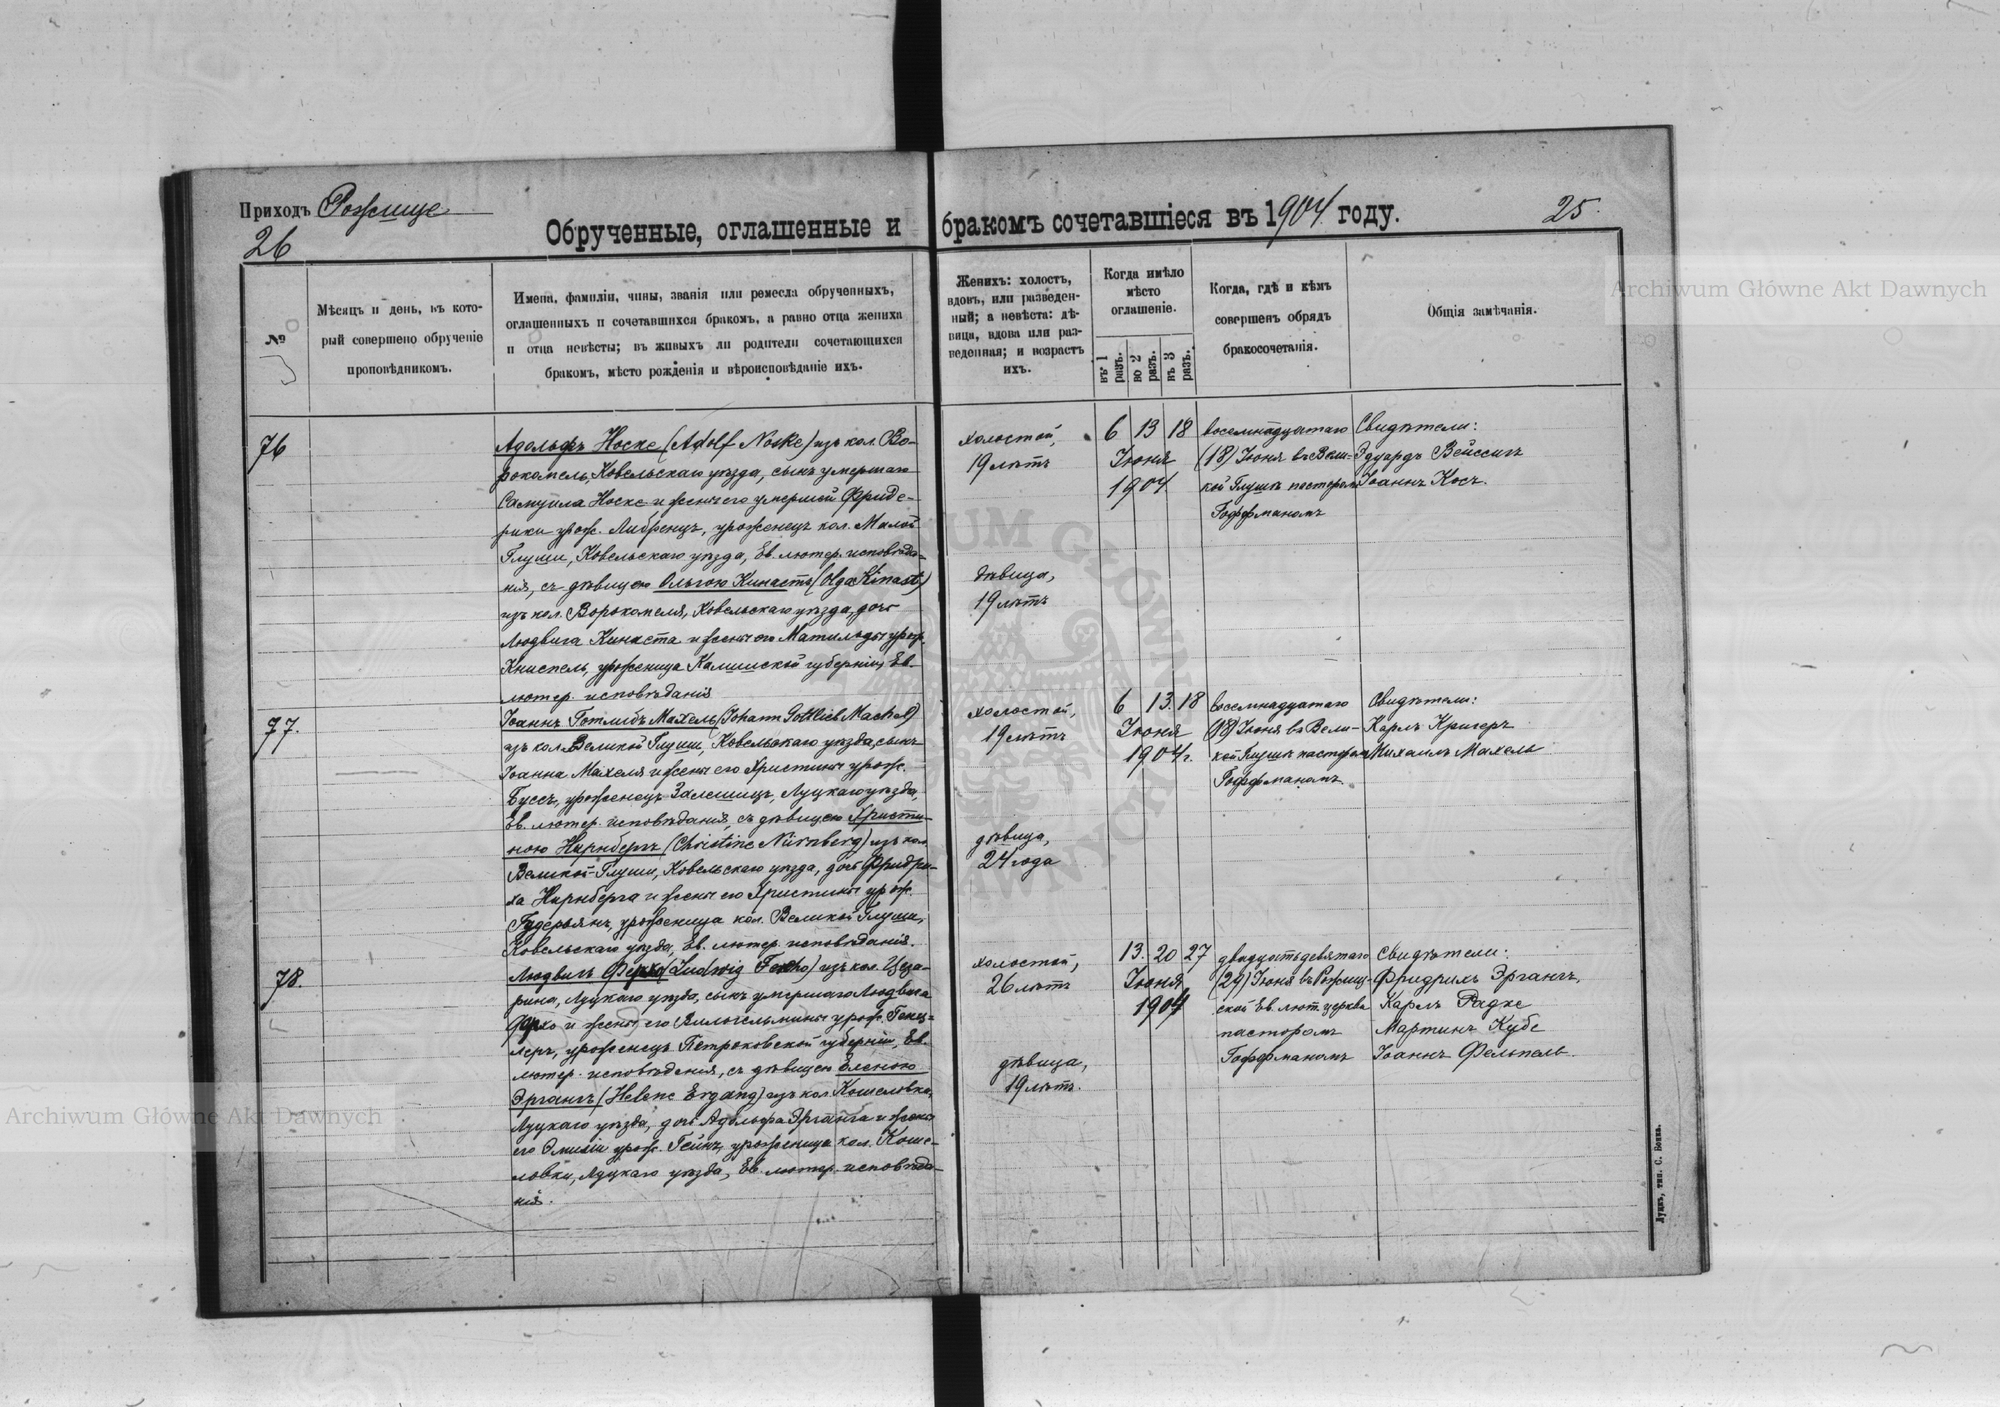 Приходъ Рожище
26
Обрученные, оглашенные и бракомъ сочетавшіеся въ 1904 году.
25.
№
Мѣсяцъ и день, въ кото-
рый совершено обрученіе
проповѣдникомъ.
Имена, фамиліи, чины, званія или ремесла обрученныхъ,
оглашенныхъ и сочетавшихся бракомъ, а равно отца жениха
и отца невѣсты; въ живыхъ ли родители сочетающихся
бракомъ, мѣсто рожденія и вѣроисповѣданіе ихъ.
Женихъ: холостъ,
вдовъ, или разведен-
ный; а невѣста: дѣ-
вица, вдова или раз-
веденная; и возрастъ
ихъ.
Когда имѣло
мѣсто
оглашеніе.
въ 1 разъ.
во 2 разъ.
въ 3 разъ.
Когда, гдѣ и кѣмъ
совершенъ обрядъ
бракосочетанія.
Общія замѣчанія.
76
Адольфъ Носке (Adolf Noske) изъ кол. Во-
рокомель, Ковельскаго уѣзда, сынъ умершаго
Самуила Носке и жены его умершей Фриде-
рики урож. Либренцъ, уроженецъ кол. Малой
Глуши, Ковельскаго уѣзда, Ев. лютер. исповѣда-
нія, съ дѣвицею Ольгою Кинастъ (Olga Kinast)
изъ кол. Ворокомеля, Ковельскаго уѣзда, дочь
Людвига Кинаста и жены его Матильды урож.
Книспель, уроженица Калишской губерніи, Ев.
лютер. исповѣданія
холостой,
19 лѣтъ
дѣвица,
19 лѣтъ
6 13 18
Іюня
1904
восемнадцатаго
(18) Іюня въ Вели-
кой Глушѣ пасторомъ
Гоффманомъ
Свидѣтели:
Эдуардъ Вейссигъ
Іоаннъ Косъ.
77.
Іоаннъ Готлибъ Махель (Johann Gottlieb Machel)
изъ кол. Великой Глуши, Ковельскаго уѣзда, сынъ
Іоанна Махеля и жены его Христины урож.
Буссъ, уроженецъ Залешицъ, Луцкаго уѣзда,
Ев. лютер. исповѣданія, съ дѣвицею Христи-
ною Нирнбергъ (Christine Nürnberg) изъ кол.
Великой Глуши, Ковельскаго уѣзда, дочь Фридри-
ха Нирнберга и жены его Христины урож.
Гудерьянъ, уроженица кол. Великой Глуши,
Ковельскаго уѣзда, Ев. лютер. исповѣданія.
холостой,
19 лѣтъ
дѣвица,
24 года
6 13. 18
Іюня
1904 г.
восемнадцатаго
(18) Іюня въ Вели-
кой Глушѣ пасторомъ
Гоффманомъ
Свидѣтели:
Карлъ Кригеръ
Михаилъ Махель
78.
Людвигъ (Ludwig) изъ кол. Цеза-
рина, Луцкаго уѣзда, сынъ умершаго Людвига
и жены его Вильгельмины урож. Генц-
леръ, уроженецъ Петроковской губерніи, Ев.
лютер. исповѣданія, съ дѣвицею Еленою
Эргангъ (Helene Ergang) изъ кол. Кошеловка,
Луцкаго уѣзда, дочь Адольфа Эрганга и жены
его Эмиліи урож. Гейнъ, уроженица кол. Коше-
ловки, Луцкаго уѣзда, Ев. лютер. исповѣда-
нія.
холостой,
26 лѣтъ
дѣвица,
19 лѣтъ.
13. 20 27
Іюня
1904
двадцатьдевятаго
(29) Іюня въ Рожищ-
ской Ев. лют. церкви
пасторомъ
Гоффманомъ
Свидѣтели:
Фридрихъ Эргангъ,
Карлъ Радке
Мартинъ Кубе
Іоаннъ Фельпель.
Луцкъ, тип. С. Бонка.
Archiwum Główne Akt Dawnych
Archiwum Główne Akt Dawnych